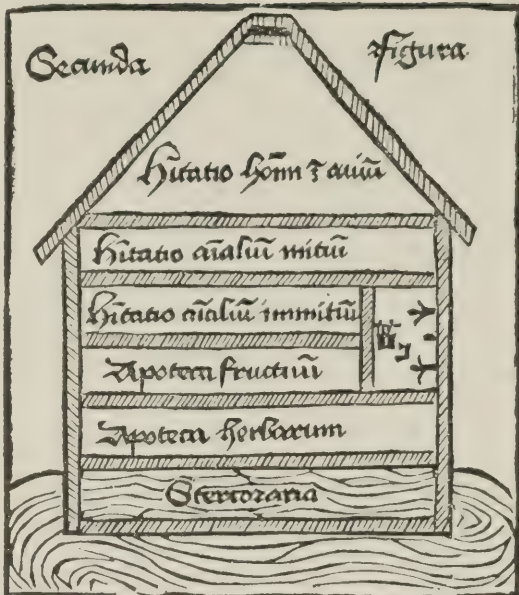 Secunda Figura
Hītatio hoīm ⁊ auiū
Hītatio aīaliū mitiū
Hītatio aīaliū immitiū
Apoteca fructuū
Apoteca herbarum
Stercoraria